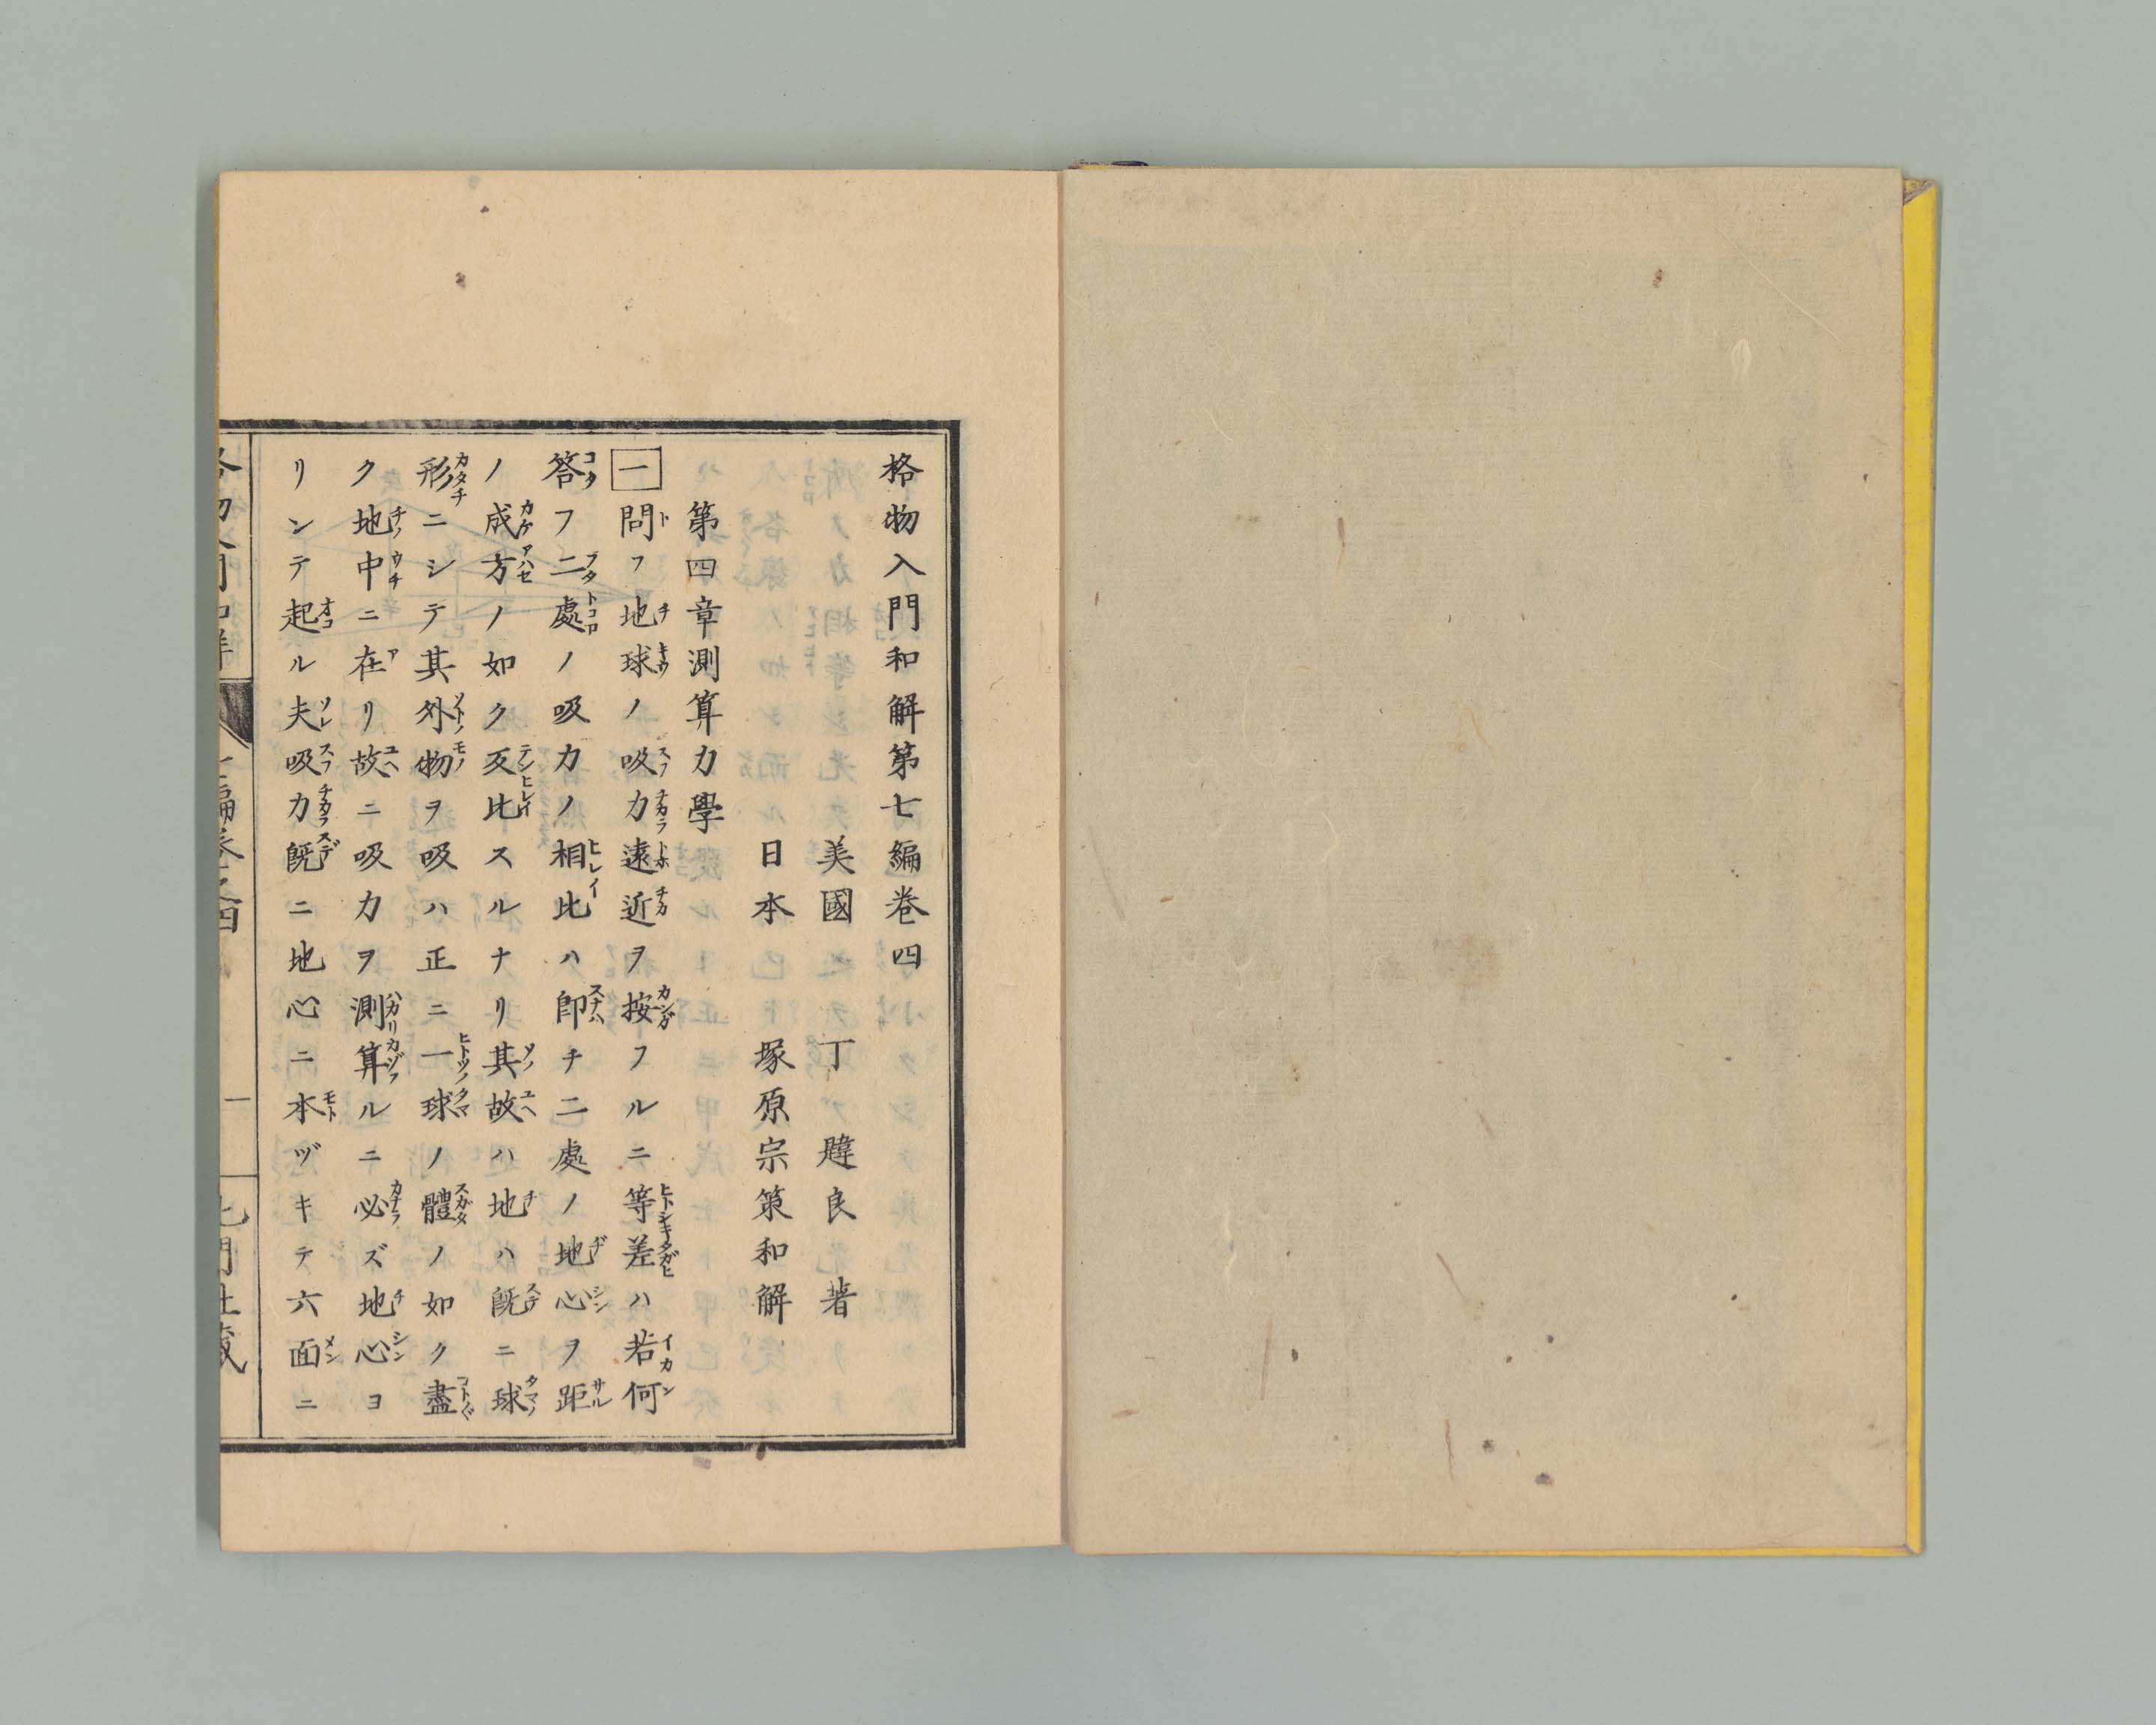 格物入門和解第七編巻四
美國　丁韙良著
日本　塚原宗策和解
第四章測算力學
一 問フ地球ノ吸力遠近ヲ按フルニ等差ハ若何
答フ二處ノ吸力ノ相比ハ卽チ二處ノ地心ヲ距
ノ成方ノ如ク反比スルナリ其故ハ地ハ旣ニ球
形ニシテ其外物ヲ吸ハ正ニ一球ノ體ノ如ク盡
ク地中ニ在リ故ニ吸力ヲ測算ルニ必ズ地心ヨ
リンテ起ル夫吸力旣ニ地心ニ本ヅキテ六面ニ